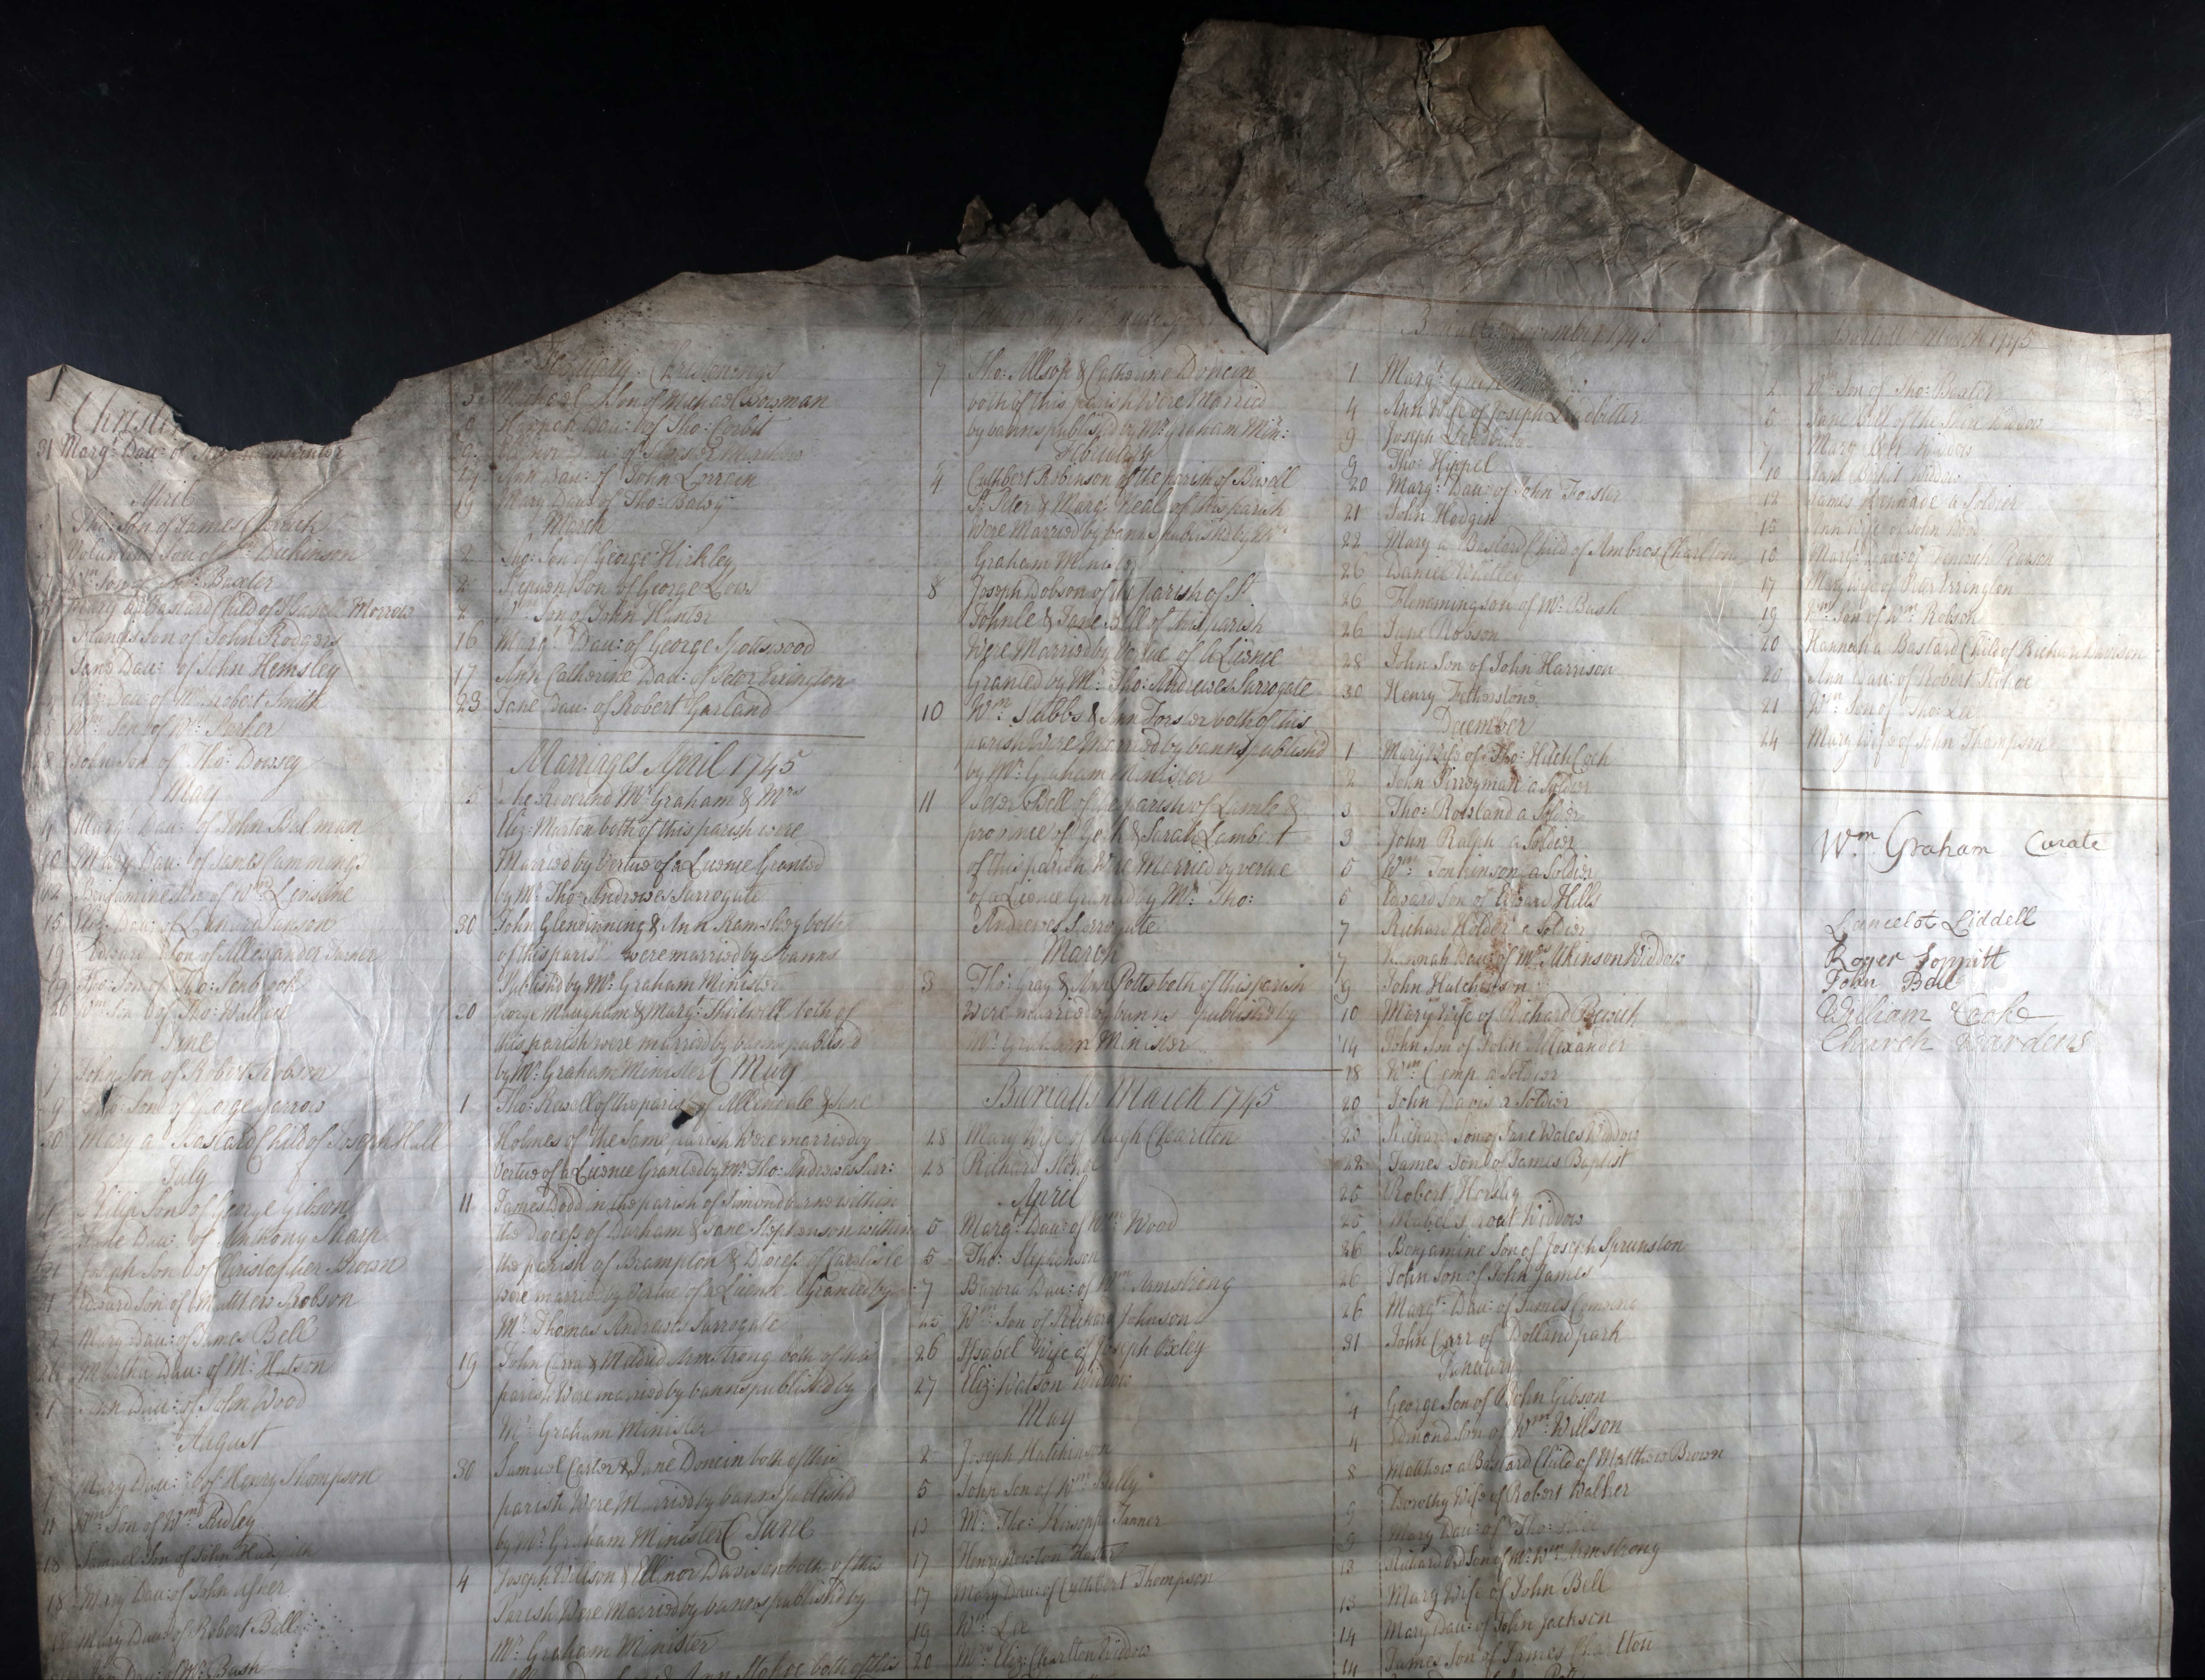 Christ
31 Marg.t Dau: of
April
Tho: Son of James
Son of Mr. Dickinson
Wm Son of Baxter
Mary a Bastard Child of Isabell Morrow
Francis Son of John Rodgers
Jane Dau: of John Hemsley
Eliz: Dau: of Mr. Robert Smith
Wm Son of Wm. Parker
John Son of Tho: Dorsey
May
Marg.t Dau: of John Bulman
10 Mary Dau: of James Cummings
12 Benjamine Son of Wm
15 Eliz: Dau: of Lanard Janson
19 Edward Son of Allexander Turner
19 Tho: Son of Tho:
26 Wm Son of Tho: Wallace
June
7 John Son of Robert Robson
9 Tho: Son of George Yarrow
30 Mary a Bastard Child of Joseph Hall
July
Philip Son of George Gibson
Dau: of Anthony Sharp
21 Joseph Son of Christopher Brown
21 Edward Son of Matthew Robson
Mary Dau: of James Bell
Martha Dau: of Mr. Hutson
Ann Dau: of John Wood
August
Mary Dau: of Henry Thompson
11 Wm Son of Wm Ridley
18 Samuel Son of John
18 Mary Dau: of John
18 Mary Dau: of Robert Bell
Dau: of Mr. Bush
Christenings
5 Michael Son of Michael Bowman
Hannah Dau: of Tho: Corbit
Dau: of
14 Ann Dau: of John Lorrain
19 Mary Dau: of Tho:
March
2 Tho: Son of George Kirkley
2 Son of George Lows
2 Son of John Hunter
16 Marg.t Dau: of George Spottswood
17 Ann Catherine Dau: of Peter Errington
23 Jane Dau: of Robert Garland
Marriages April 1745
5 The Reverend Mr. Graham & Mrs
Eliz: Marton both of this parish were
Married by Vertue of a Licence Granted
by Mr. Tho: Andrewes Surrogate
30 John Glendinning & Ann Ramshay both
of this parish were married by banns
Published by Mr. Graham Minister
30 George Maugham & Marg.t Thirlwell both of
this parish were married by banns publis'd
by Mr. Graham Minister May
1 Tho: of the parish of Allendale & Jane
Holmes of the Same parish Were married by
Vertue of a Licence Granted by Mr. Tho: Andrewes Surr:
11 James Dodd in the parish of Simondburne within
the Diocess of Durham & Jane Stephenson within
the parish of Brampton & Diocess of Carlisle
were married by Vertue of a Licence Granted by
Mr. Thomas Andrews Surrogate
19 John Carra & Mildred Armstrong both of this
parish Were married by banns published by
Mr. Graham Minister
30 Samuel Carter & Jane Doncin both of this
parish Were Married by banns publish'd
by Mr. Graham Minister June
4 Joseph Willson & Ellinor Davison both of this
Parish Were Married by banns published by
Mr. Graham Minister
Ann Stokoe both of this
7 Tho: Allsop & Catherine Doncin
both of this parish Were Married
by banns publised by Mr. Graham Min:
February
4 Cuthbert Robinson of the parish of Biwell
St. Peter & Marg.t Neal of this parish
Were Married by banns published by Mr.
Graham Minister
8 Joseph Dobson of the parish of St.
Johnle & Jane Bell of this parish
Were Married by Vertue of a Licence
Granted by Mr. Tho: Andrewes Surrogate
10 Wm. Stubbs & Ann Forster both of this
parish Were Married by banns publish'd
by Mr. Graham Minister
11 Peter Bell of the parish of &
province of York & Sarah Lambert
of this parish Were Married by vertue
of a Licence Granted by Mr. Tho:
Andrewes Surrogate
March
3 Tho: Gray & Ann Potts both of this parish
were married by banns published by
Mr. Graham Minister
Burialls March 1745
28 Mary Wife of Hugh Charlton
28 Richard
April
5 Marg.t Dau: of Wm. Wood
5 Tho: Stephenson
7 Barbra Dau: of Wm Armstrong
25 Wm Son of Richard Johnson
26 Issabel Wife of Joseph Oxley
27 Eliz: Watson Widdow
May
2 Joseph Hutchinson
5 John Son of Wm
13 Mr. Tho: Kirsopp Tanner
17 Henry
17 Mary Dau: of Cuthbert Thompson
19 Wm Lee
20 Mrs Eliz: Charlton Widdow
Burialls November 1745
1 Marg.t
4 Ann Wife of Joseph Leadbitter
9 Joseph
9 Tho: Hippel
20 Marg.t Dau: of John Forster
21 John Hodgin
22 Mary a Bastard Child of Ambros Charlton
26 Daniel Whitley
26 Flemming Son of Mr. Bush
26 Jane Robson
28 John Son of John Harrison
30 Henry Fetherstone
December
1 Mary Wife of Tho: Hitchcoch
2 John Perreyman a Soldier
3 Tho: Rowland a Soldier
3 John Ralph a Soldier
5 Wm Tonkinson a Soldier
5 Edward Son of Edward Hills
7 Richard Holder a Soldier
7 Hannah Dau: of Mrs Atkinson Widdow
9 John Hutcheson
10 Mary Wife of Richard
14 John Son of John Alexander
18 Wm Cemp a Soldier
20 John Davis a Soldier
20 Richard Son of Jane Wales Widdow
22 James Son of James Baptist
25 Robert Horsley
25 Mabel Widdow
26 Benjamine Son of Joseph Sprunston
26 John Son of John James
26 Marg.t Dau: of James
31 John Carr of Dolland park
January
4 George Son of John Gibson
4 Edmond Son of Wm Willson
8 Matthew a Bastard Child of Matthew Brown
9 Dorothy Wife of Robert Walker
9 Mary Dau: of Tho:
13 Richard Son of Mr. Wm Armstrong
13 Mary Wife of John Bell
14 Mary Dau: of John Jackson
14 James Son of James Charlton
Burialls March 1745
2 Wm Son of Tho: Baxter
5 Jane Bell of the Widdow
7 Marg.t Bell Widdow
10 Jane Widdow
12 James a Soldier
15 Ann Wife of John
16 Marg.t Dau: of
17 Mary Wife of Peter Errington
19 Wm Son of Wm Robson
20 Hannah a Bastard Child of Richard Davison
20 Ann Dau: of Robert
21 Wm Son of Tho: Lee
24 Mary Wife of John Thompson
Wm Graham Curate
Lancelot Liddell
Roger Soppitt
John Bell
William Cooke
Church Wardens